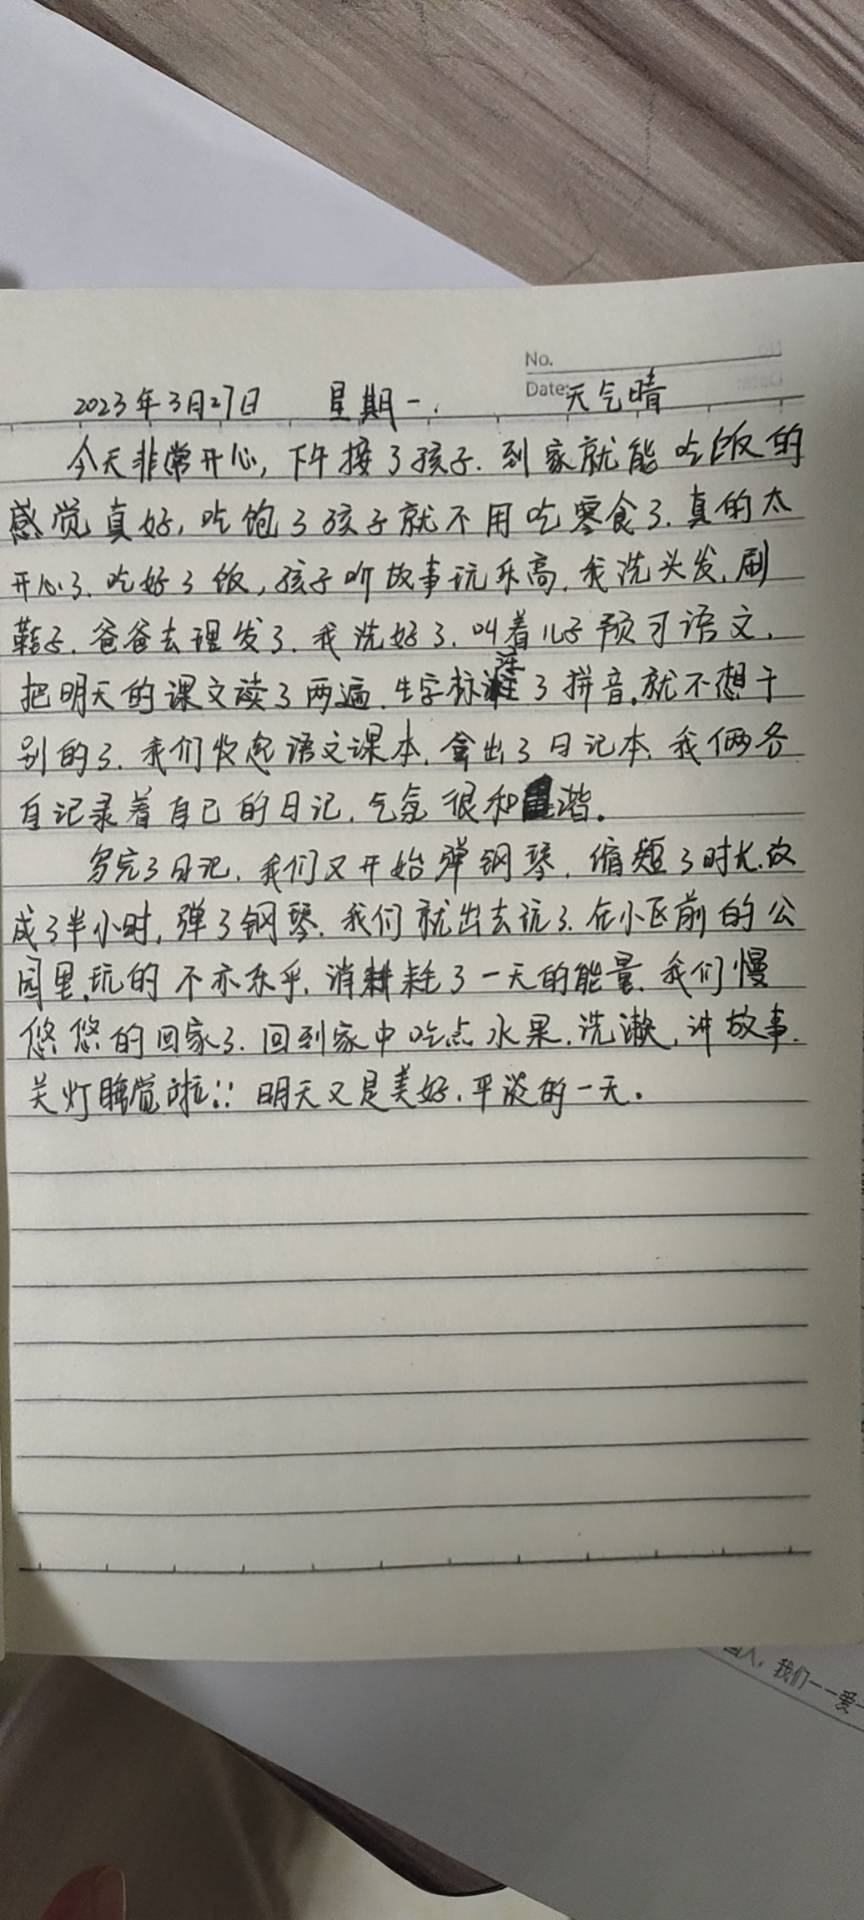 No.
Date:
2023年3月27日 星期一. 天气晴
今天非常开心,下午接了孩子.到家就能吃饭的
感觉真好,吃饱了孩子就不用吃零食了.真的太
开心了.吃好了饭,孩子听故事玩乐高.我洗头发,刷
鞋子.爸爸去理发了.我洗好了.叫着儿子预习语文.
把明天的课文读了两遍.生字标注了拼音.就不想干
别的了.我们收起语文课本.拿出了日记本.我俩各
自记录着自己的日记.气氛很和谐。
写完了日记,我们又开始弹钢琴.缩短了时长.改
成了半小时,弹了钢琴.我们就出去玩了.在小区前的公
园里.玩的不亦乐乎.消耗了一天的能量.我们慢
悠悠的回家了.回到家中吃点水果.洗漱,讲故事.
关灯睡觉啦!!明天又是美好.平淡的一天。
人,我们一一爱一